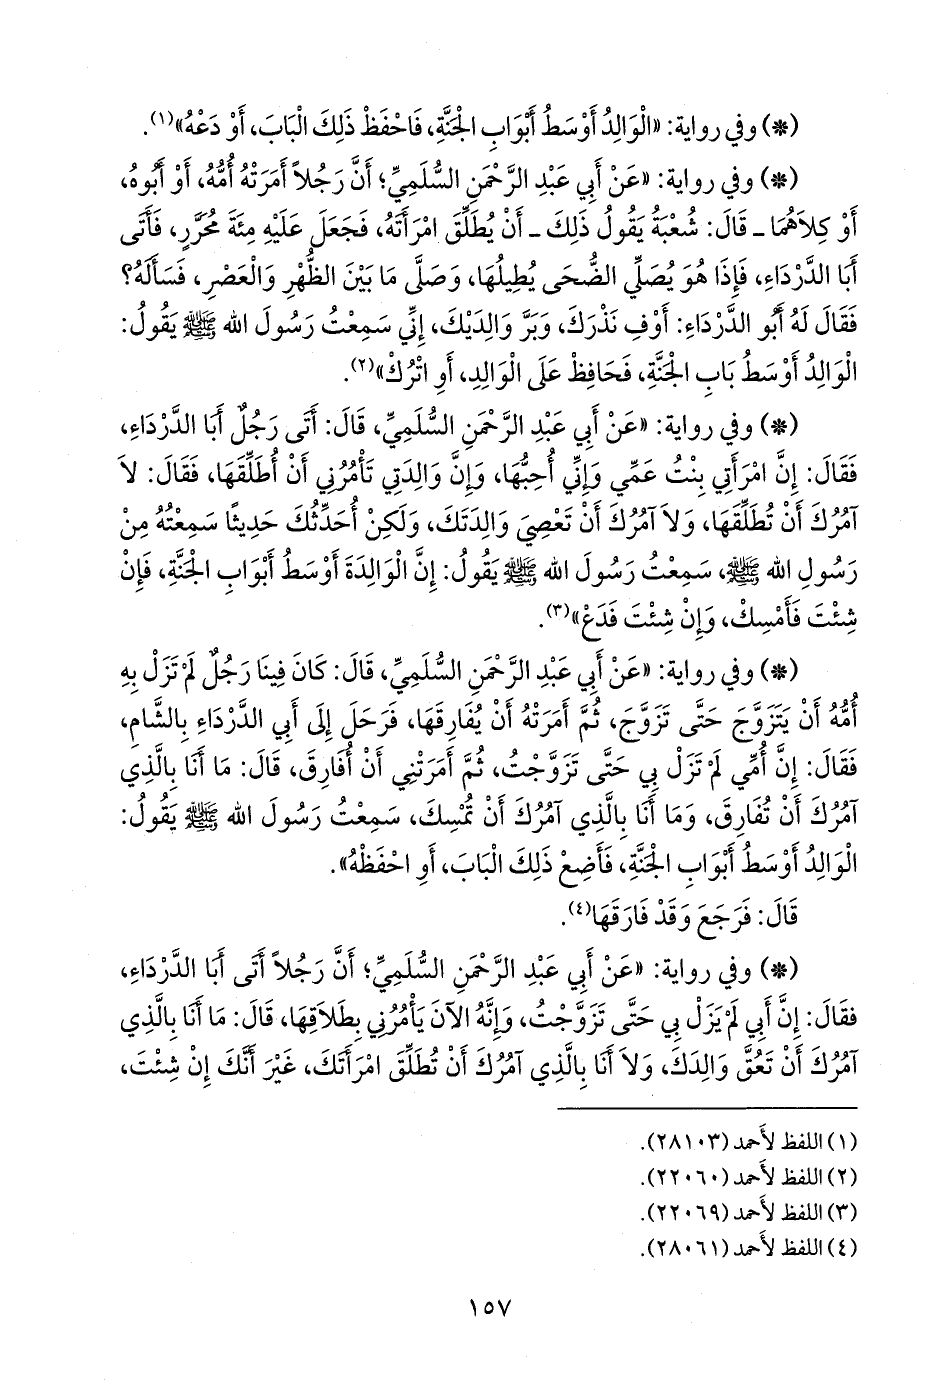 (*) وفي رواية: «الْوَالِدُ أَوْسَطُ أَبْوَابِ الْجَنَّةِ، فَاحْفَظْ ذَلِكَ الْبَابَ، أَوْ دَعْهُ»(١).
(*) وفي رواية: «عَنْ أَبِي عَبْدِ الرَّحْمَنِ السُّلَمِيِّ؛ أَنَّ رَجُلاً أَمَرَتْهُ أُمُّهُ، أَوْ أَبُوهُ،
أَوْ كِلاَهُمَا ـ قَالَ: شُعْبَةُ يَقُولُ ذَلِكَ ـ أَنْ يُطَلِّقَ امْرَأَتَهُ، فَجَعَلَ عَلَيْهِ مِئَةَ مُحَرَّرٍ، فَأَتَى
أَبَا الدَّرْدَاءِ، فَإِذَا هُوَ يُصَلِّي الضُّحَى يُطِيلُهَا، وَصَلَّى مَا بَيْنَ الظُّهْرِ وَالْعَصْرِ، فَسَأَلَهُ؟
فَقَالَ لَهُ أَبُو الدَّرْدَاءِ: أَوْفِ نَذْرَكَ، وَبَرَّ وَالِدَيْكَ، إِنِّي سَمِعْتُ رَسُولَ الله ﷺ يَقُولُ:
الْوَالِدُ أَوْسَطُ بَابِ الْجَنَّةِ، فَحَافِظْ عَلَى الْوَالِدِ، أَوِ اتْرُكْ»(٢).
(*) وفي رواية: «عَنْ أَبِي عَبْدِ الرَّحْمَنِ السُّلَمِيِّ، قَالَ: أَتَى رَجُلٌ أَبَا الدَّرْدَاءِ،
فَقَالَ: إِنَّ امْرَأَتِي بِنْتُ عَمِّي وَإِنِّي أُحِبُّهَا، وَإِنَّ وَالِدَتِي تَأْمُرُنِي أَنْ أُطَلِّقَهَا، فَقَالَ: لاَ
آمُرُكَ أَنْ تُطَلِّقَهَا، وَلاَ آمُرُكَ أَنْ تَعْصِيَ وَالِدَتَكَ، وَلَكِنْ أُحَدِّثُكَ حَدِيثًا سَمِعْتُهُ مِنْ
رَسُولِ الله ﷺ، سَمِعْتُ رَسُولَ الله ﷺ يَقُولُ: إِنَّ الْوَالِدَةَ أَوْسَطُ أَبْوَابِ الْجَنَّةِ، فَإِنْ
شِئْتَ فَأَمْسِكْ، وَإِنْ شِئْتَ فَدَعْ»(٣).
(*) وفي رواية: «عَنْ أَبِي عَبْدِ الرَّحْمَنِ السُّلَمِيِّ، قَالَ: كَانَ فِينَا رَجُلٌ لَمْ تَزَلْ بِهِ
أُمُّهُ أَنْ يَتَزَوَّجَ حَتَّى تَزَوَّجَ، ثُمَّ أَمَرَتْهُ أَنْ يُفَارِقَهَا، فَرَحَلَ إِلَى أَبِي الدَّرْدَاءِ بِالشَّامِ،
فَقَالَ: إِنَّ أُمِّي لَمْ تَزَلْ بِي حَتَّى تَزَوَّجْتُ، ثُمَّ أَمَرَتْنِي أَنْ أُفَارِقَ، قَالَ: مَا أَنَا بِالَّذِي
آمُرُكَ أَنْ تُفَارِقَ، وَمَا أَنَا بِالَّذِي آمُرُكَ أَنْ تُمْسِكَ، سَمِعْتُ رَسُولَ الله ﷺ يَقُولُ:
الْوَالِدُ أَوْسَطُ أَبْوَابِ الْجَنَّةِ، فَأَضِعْ ذَلِكَ الْبَابَ، أَوِ احْفَظْهُ».
قَالَ: فَرَجَعَ وَقَدْ فَارَقَهَا(٤).
(*) وفي رواية: «عَنْ أَبِي عَبْدِ الرَّحْمَنِ السُّلَمِيِّ؛ أَنَّ رَجُلاً أَتَى أَبَا الدَّرْدَاءِ،
فَقَالَ: إِنَّ أَبِي لَمْ يَزَلْ بِي حَتَّى تَزَوَّجْتُ، وَإِنَّهُ الآنَ يَأْمُرُنِي بِطَلاَقِهَا، قَالَ: مَا أَنَا بِالَّذِي
آمُرُكَ أَنْ تَعُقَّ وَالِدَكَ، وَلاَ أَنَا بِالَّذِي آمُرُكَ أَنْ تُطَلِّقَ امْرَأَتَكَ، غَيْرَ أَنَّكَ إِنْ شِئْتَ،
(١) اللفظ لأحمد (٢٨١٠٣).
(٢) اللفظ لأحمد (٢٢٠٦٠).
(٣) اللفظ لأحمد (٢٢٠٦٩).
(٤) اللفظ لأحمد (٢٨٠٦١).
١٥٧